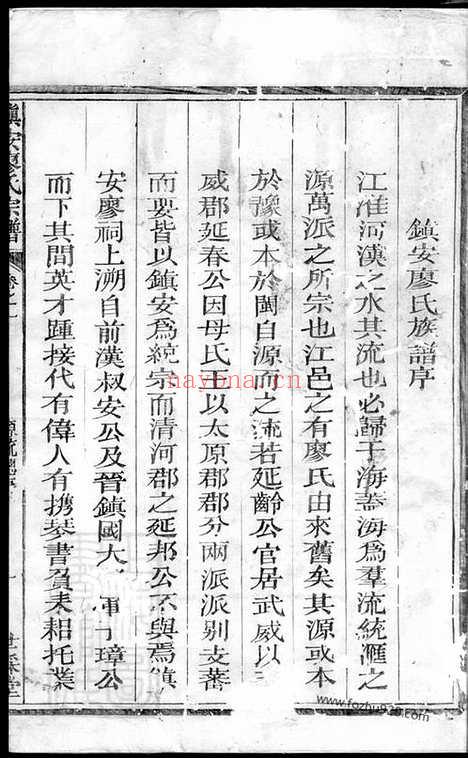 鎮安廖氏族譜序
江淮河漢之水其流也必歸于海葢海為羣流統滙之
源萬派之所宗也江邑之有廖氏由來舊矣其源或本
於豫或本於閩自源而之流若延齡公官居武威以
威郡延春公因母氏王以太原郡郡分兩派派别支蕃
而要皆以鎮安為統宗而清河郡之延邦公不與焉鎮
安廖祠上溯自前漢叔安公及晉鎮國大 軍子璋公
而下其間英才踵接代有偉人有携琴書負耒耜托業
鎮安廖氏宗譜 卷之一
nayona.cn
www.fozhu920.com